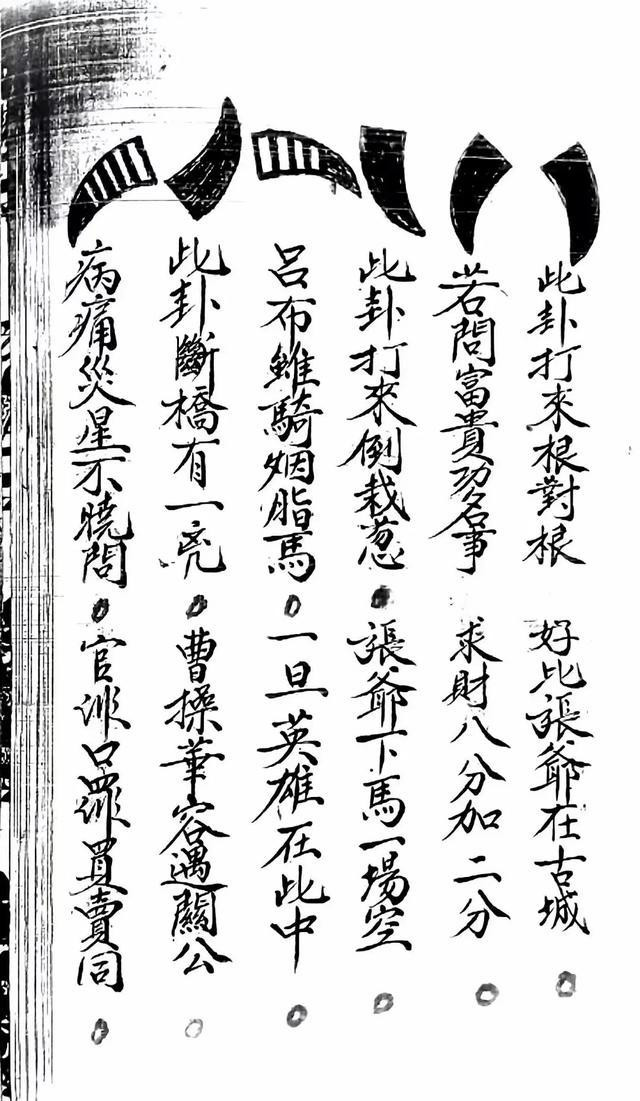 此卦打來根對根 好比張爺在古城
若問富貴功名事 求財八分加二分
此卦打來倒栽葱 張爺下馬一場空
呂布雖騎烟脂馬 一旦英雄在此中
此卦斷橋有一兇 曹操華容遇關公
病痛災星不曉問 官非口罪買賣同